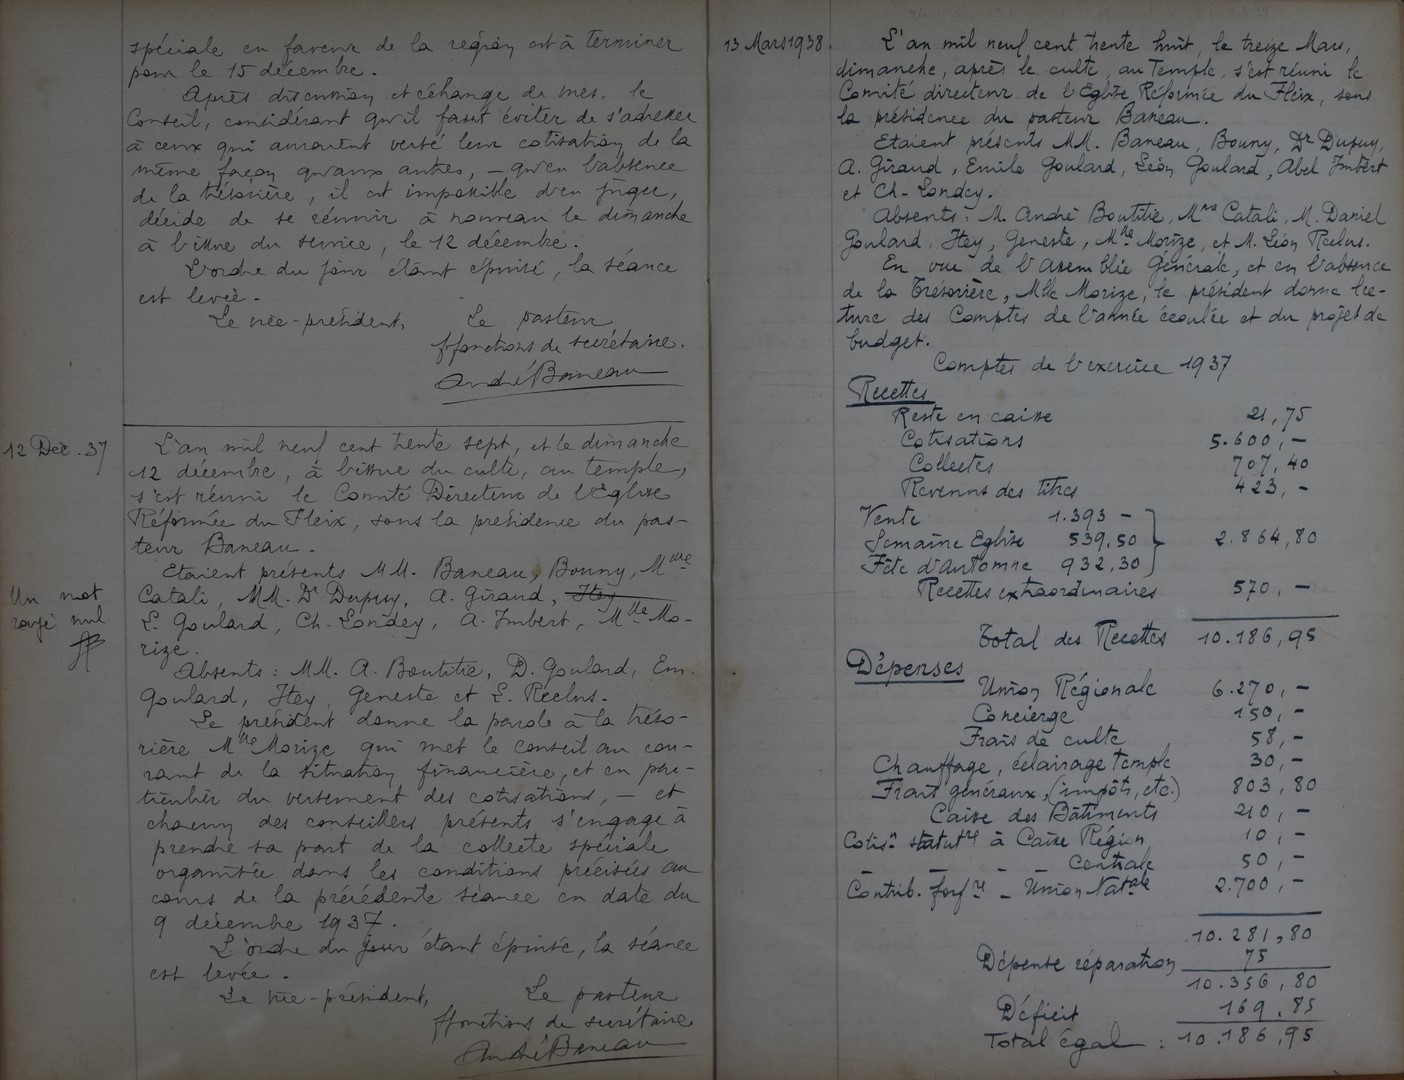 spéciale en faveur de la région est à terminer
pour le 15 décembre.
Après discussion et échange de vues, le
Conseil, considérant qu'il faut éviter de s'adresser
à ceux qui auraient versé leur cotisation de la
même façon qu'aux autres, — qu'en l'absence
de la trésorière, il est impossible d'en juger,
décide de se réunir à nouveau le dimanche
à l'issue du service, le 12 décembre.
L'ordre du jour étant épuisé, la séance
est levée.
Le vice-président, Le pasteur
ffonctions de secrétaire.
André Baneau
12 Déc. 37
L'an mil neuf cent trente sept, et le dimanche
12 décembre, à l'issue du culte, au temple,
s'est réuni le Comité Directeur de l'Eglise
Réformée du Fleix, sous la présidence du pas-
teur Baneau.
Etaient présents MM. Baneau, Bouny, Mme
Catali, MM. Dr Dupuy, A. Giraud, Hey
L. Goulard, Ch. Londey, A. Imbert, Mlle Mo-
rize.
Un mot
rayé nul
Absents : MM. A. Boutitie, D. Goulard, Em.
Goulard, Hey, Geneste et L. Reclus.
Le président donne la parole à la tréso-
rière Mlle Morize qui met le conseil au cou-
rant de la situation financière, et en par-
ticulier du versement des cotisations, — et
chacun des conseillers présents s'engage à
prendre sa part de la collecte spéciale
organisée dans les conditions précisées au
cours de la précédente séance en date du
9 décembre 1937.
L'ordre du jour étant épuisé, la séance
est levée.
Le vice-président, Le pasteur
ffonctions de secrétaire
André Baneau
13 Mars 1938.
L'an mil neuf cent trente huit, le treize Mars,
dimanche, après le culte, au Temple, s'est réuni le
Comité directeur de l'Eglise Réformée du Fleix, sous
la présidence du pasteur Baneau.
Etaient présents MM. Baneau, Bouny, Dr Dupuy,
A. Giraud, Emile Goulard, Léon Goulard, Abel Imbert
et Ch. Londey.
Absents : M. André Boutitie, Mme Catali, M. Daniel
Goulard, Hey, Geneste, Mlle Morize, et M. Léon Reclus.
En vue de l'Assemblée Générale, et en l'absence
de la Trésorière, Mlle Morize, le président donne lec-
ture des Comptes de l'année écoulée et du projet de
budget.
Comptes de l'exercice 1937
Recettes
Reste en caisse 21,75
Cotisations 5.600,—
Collectes 707,40
Revenus des titres 423,—
Vente 1.393 —
Semaine Eglise 539,50 } 2.864,80
Fête d'Automne 932,30
Recettes extraordinaires 570,—
Total des Recettes 10.186,95
Dépenses
Union Régionale 6.270,—
Concierge 150,—
Frais de culte 58,—
Chauffage, éclairage temple 30,—
Frais généraux, (impôts, etc.) 803,80
Caisse des Bâtiments 210,—
Cotisn statutre à Caisse Région 10,—
— — — Centrale 50,—
Contrib. forfre — Union Natale 2.700,—
10.281,80
Dépense réparation 75
10.356,80
Déficit 169,85
Total égal : 10.186,95